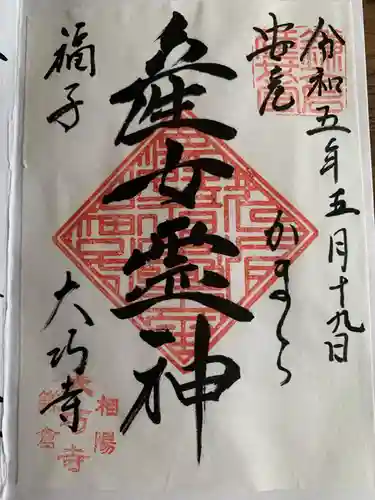 令和五年五月十九日
安産
かまくら
産女霊神
福子
大巧寺
相陽
鎌倉
大巧寺